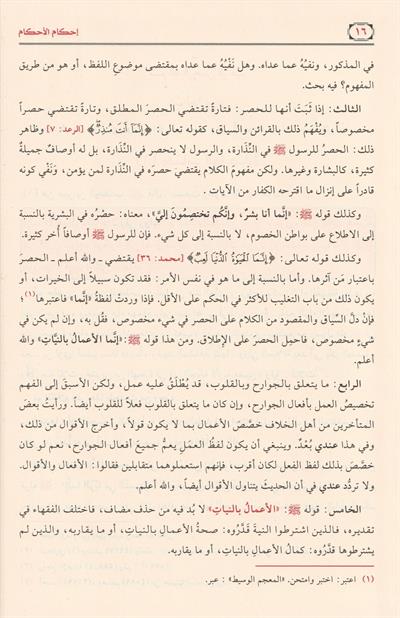 ١٦
إحكام الأحكام
في المذكور، ونفيُه عما عداه. وهل نَفْيُه عما عداه بمقتضى موضوعِ اللفظ، أو هو من طريق
المفهوم؟ فيه بحث.
الثالث: إذا ثَبَتَ أنها للحصر: فتارةً تقتضي الحصرَ المطلق، وتارةً تقتضي حصراً
مخصوصاً، ويُفْهَمُ ذلك بالقرائن والسياق، كقوله تعالى: ﴿إِنَّمَآ أَنتَ مُنذِرٌ﴾ [الرعد: ٧] وظاهر
ذلك: الحصرُ للرسول ﷺ في النِّذَارة، والرسول لا ينحصر في النِّذَارة، بل له أوصافٌ جميلةٌ
كثيرة، كالبشارة وغيرها. ولكن مفهومَ الكلام يقتضي حصرَه في النِّذارة لمن يؤمن، ونَفْيَ كونه
قادراً على إنزال ما اقترحه الكفار من الآيات.
وكذلك قوله ﷺ: «إنَّما أنا بشرٌ، وإنَّكُم تختصِمُون إليَّ»، معناه: حصْرُه في البشرية بالنسبة
إلى الاطلاع على بواطن الخصوم، لا بالنسبة إلى كل شيء. فإن للرسول ﷺ أوصافاً أُخر كثيرة.
وكذلك قوله تعالى: ﴿إِنَّمَا ٱلْحَيَوٰةُ ٱلدُّنْيَا لَعِبٌ﴾ [محمد: ٣٦] يقتضي ـ والله أعلم ـ الحصرَ
باعتبار مَن آثرها. وأما بالنسبة إلى ما هو في نفس الأمر: فقد تكون سبيلاً إلى الخيرات، أو
يكون ذلك من باب التغليب للأكثر في الحكم على الأقل. فإذا وردتْ لفظةُ «إنَّما» فاعتبرها(١)؛
فإنْ دلَّ السِّياق والمقصود من الكلام على الحصر في شيء مخصوص، فقُل به، وإن لم يكن في
شيءٍ مخصوص، فاحمِل الحصرَ على الإطلاق. ومن هذا قوله ﷺ: «إنَّما الأعمالُ بالنيَّات» والله
أعلم.
الرابع: ما يتعلق بالجوارح وبالقلوب، قد يُطْلَقُ عليه عمل، ولكن الأسبقَ إلى الفهم
تخصيصُ العمل بأفعال الجوارح، وإن كان ما يتعلق بالقلوب فعلاً للقلوب أيضاً. ورأيتُ بعضَ
المتأخرين من أهل الخلاف خصَّصَ الأعمالَ بما لا يكون قولاً، وأخرج الأقوال من ذلك،
وفي هذا عندي بُعْدٌ. وينبغي أن يكون لفظُ العملِ يعمُّ جميعَ أفعالِ الجوارح، نعم لو كان
خصَّصَ بذلك لفظ الفعل لكان أقرب، فإنهم استعملوهما متقابلين فقالوا: الأفعال والأقوال.
ولا تردُّد عندي في أن الحديثَ يتناول الأقوال أيضاً، والله أعلم.
الخامس: قوله ﷺ: «الأعمالُ بالنياتِ» لا بُد فيه من حذف مضاف، فاختلف الفقهاء في
تقديره، فالذين اشترطوا النيةَ قدَّروه: صحةُ الأعمالِ بالنياتِ، أو ما يقاربه، والذين لم
يشترطوها قدَّرُوه: كمالُ الأعمالِ بالنياتِ، أو ما يقاربه.
(١) اعتبر: اختبر وامتحن. «المعجم الوسيط»: عبر.